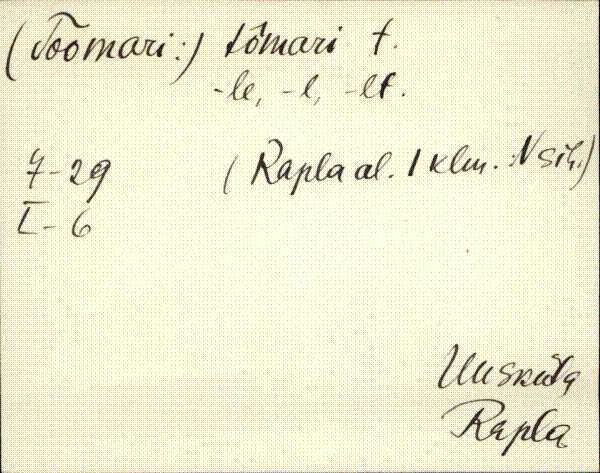 (Toomari:) tômari t.
-le, -l, -lt.
7-29 (Rapla al. 1 klm. N sih.)
I-6
Uusküla
Rapla